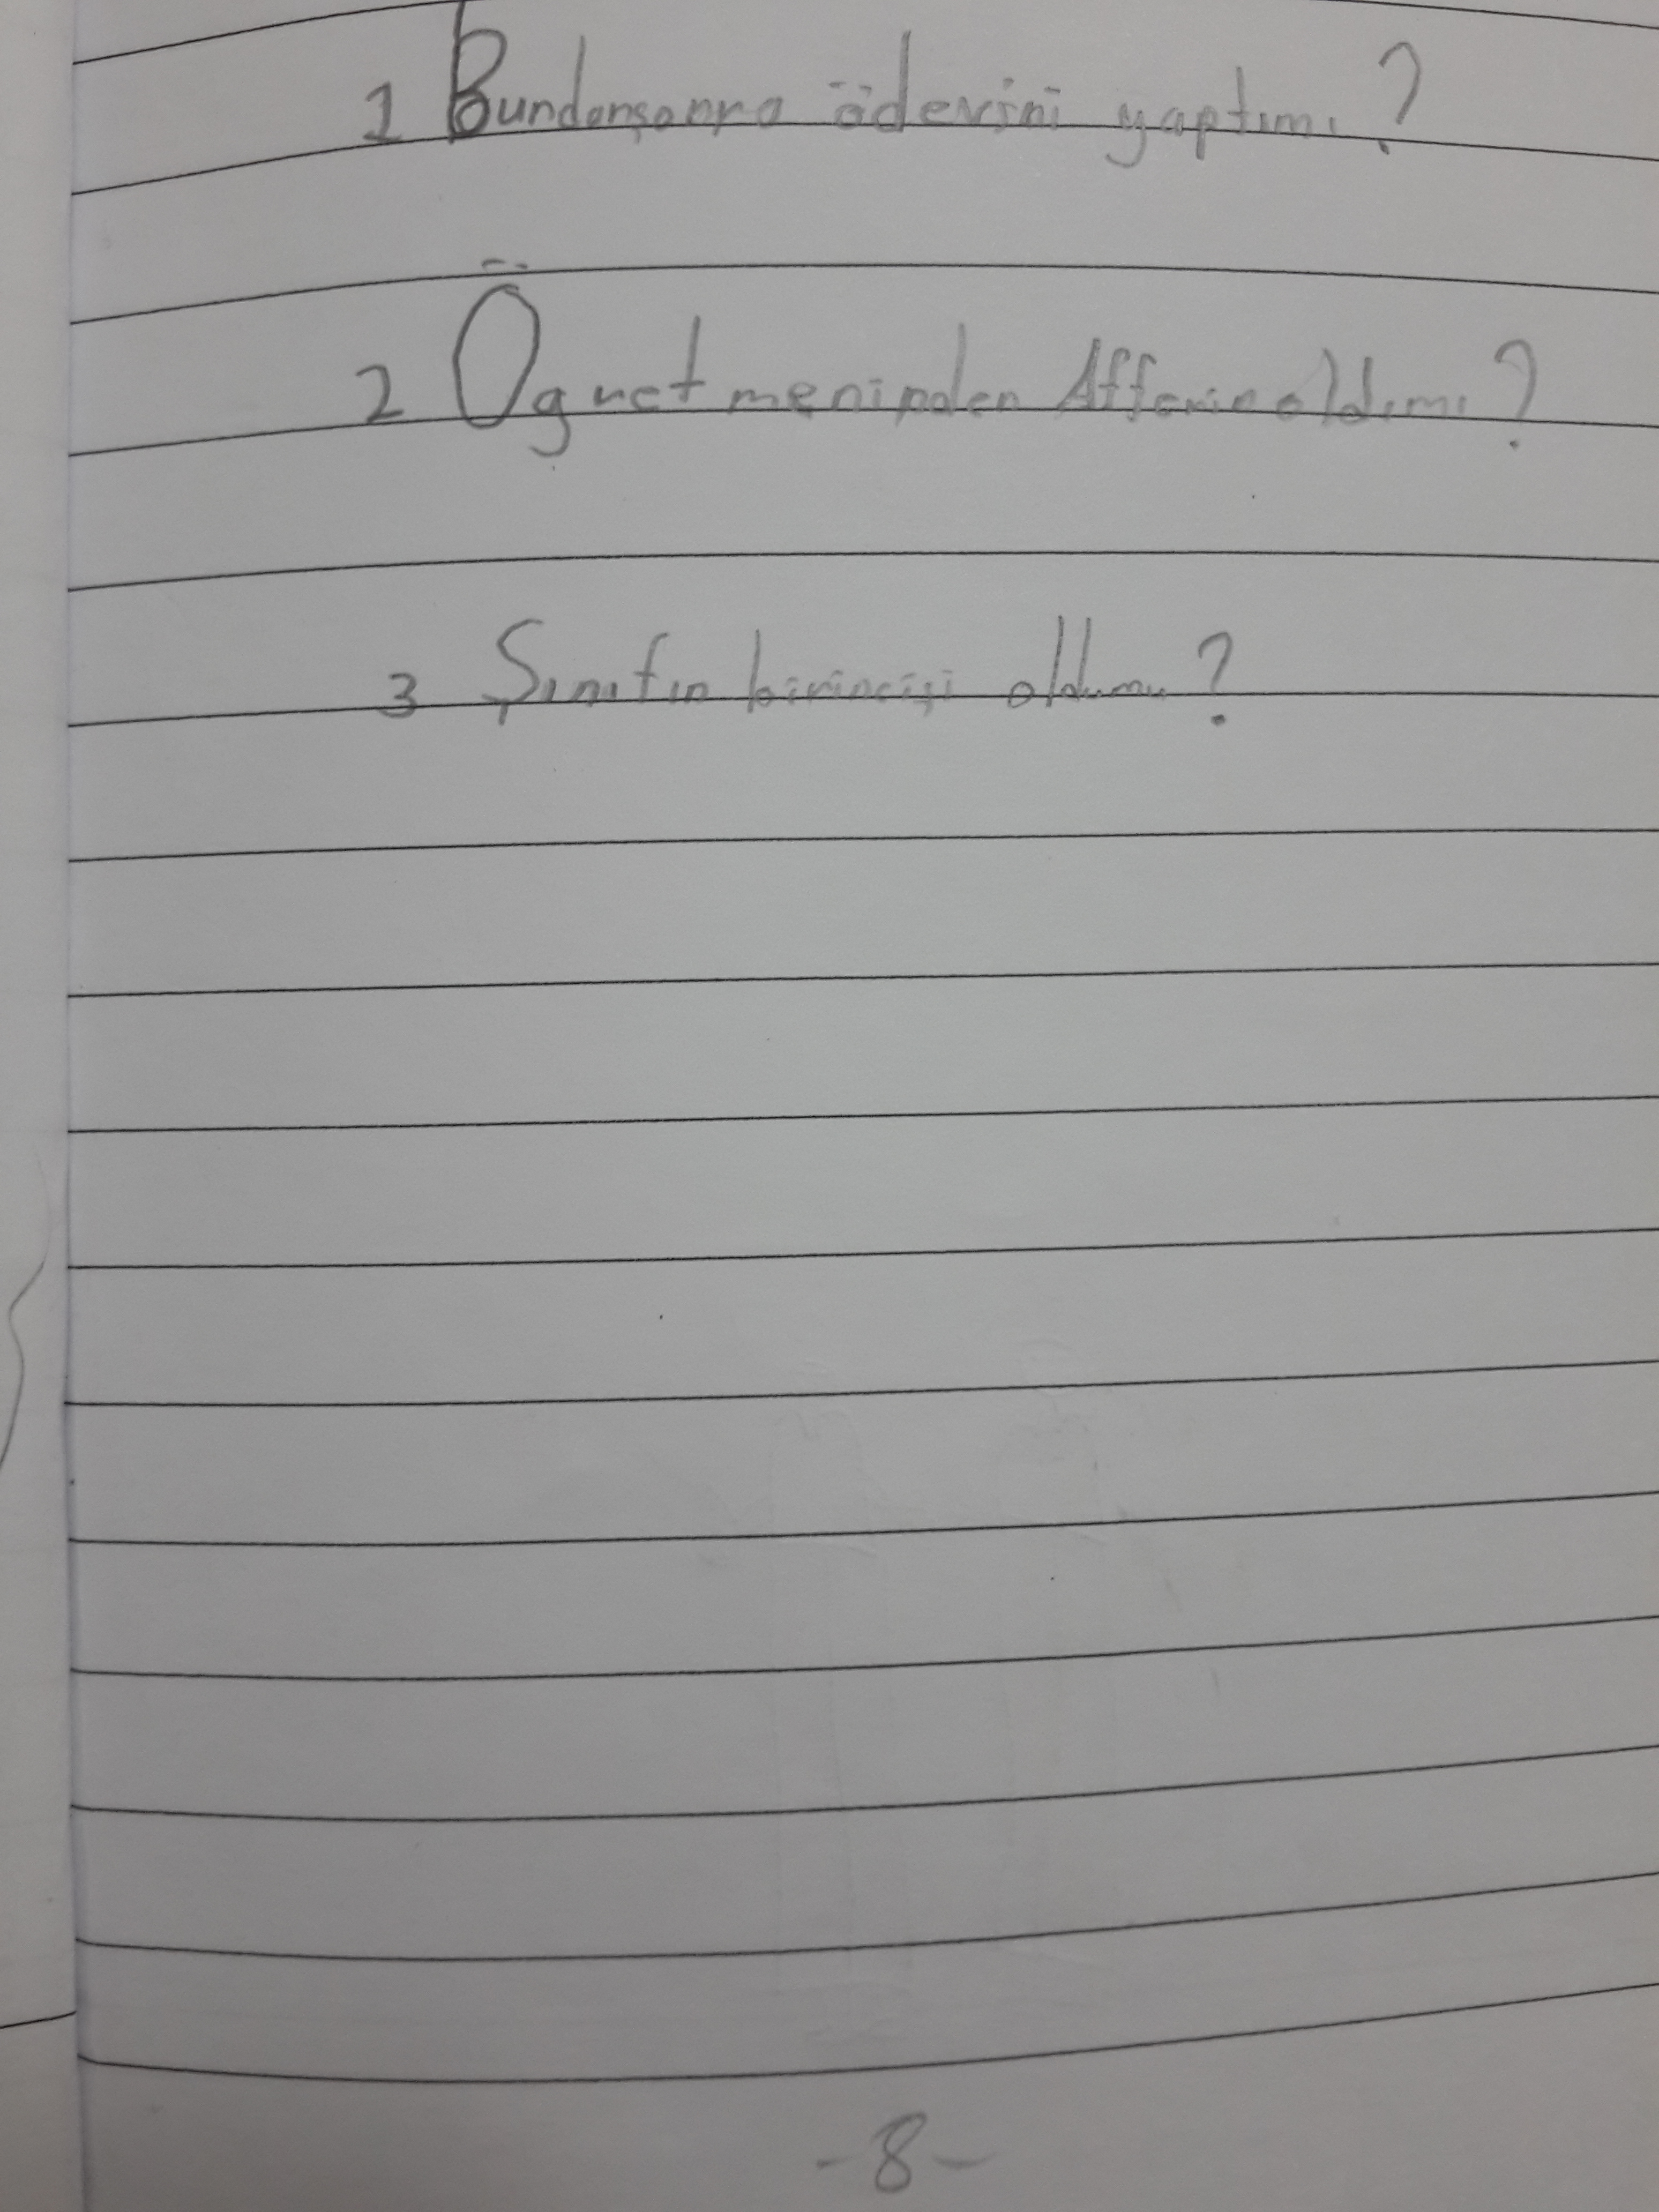 1 Bundanşonra ödevini yaptımı?
2 Ögretmeninden Afferin aldımı?
3 Şınıfın birincişi oldumu?
-8-